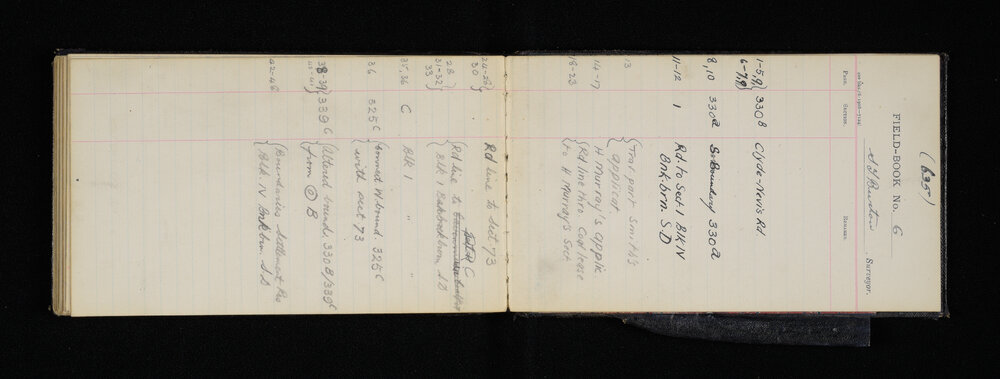 (635)
FIELD-BOOK No. 6
Surveyor.
Page. Section. Remarks.
1-5,9 } 330B Clyde-Nevis Rd
6-7,8 }
8,10 330a So Boundary 330a
11-12 1 Rd. to Sect 1 Blk IV
Bnk.brn. S.D
13 { Trav. part Smith's
applicat
14-17 H Murray's applic
18-23 { Rd line thro Cad lease
to H Murray's Sect
24-28 } Rd line to Sect 73
30 }
28 } { Rd line to Sect C
31-32 } { Blk 1 S.D
33 }
35, 36 C Blk 1 "
36 325C { W bound. 325C
with sect 73
38-39 } 339C { bounds 330B/339C
} { from @ B
42-46 { Boundaries Settlement Res
{ Blk. IV Bnk brn. S D